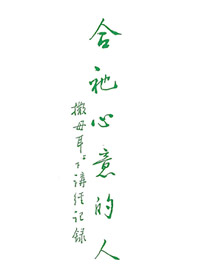 合祂心意的人
撒母耳上下講經記錄